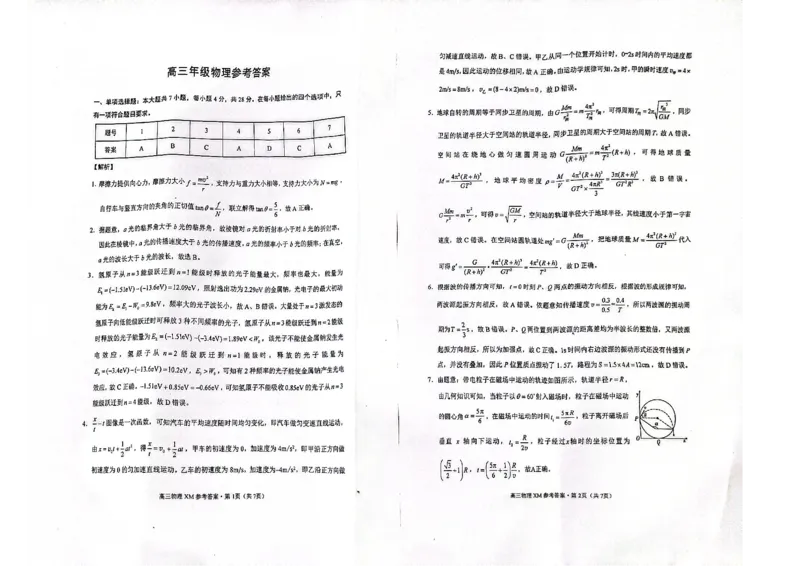 高三年级物理参考答案
一、单项选择题：本大题共7小题，每小题4分，共28分。在每小题给出的四个选项中，只
有一项符合题目要求。
题号 1 2 3 4 5 6 7
答案 A B C A D C A
【解析】
1. 摩擦力提供向心力，摩擦力大小 f=mv²/r，支持力与重力大小相等，支持力大小为 N=mg，
自行车与竖直方向的夹角的正切值 tanθ=f/N，联立解得 tanθ=5/6，故 A 正确。
2. 据题意，a 光的临界角大于 b 光的临界角，故棱镜对 a 光的折射率小于对 b 光的折射率，
因此在棱镜中，a 光的传播速度大于 b 光的传播速度。a 光的频率小于 b 光的频率；在真空，
a 光的波长大于 b 光的波长，故选 B。
3. 氢原子从 n=3 能级跃迁到 n=1 能级时释放的光子能量最大，频率也最大，能量为
E₁=(-1.51eV)-(-13.6eV)=12.09eV，照射逸出功为2.29eV的金属钠，光电子的最大初动
能为 Eₖ=E₁-W₀=9.8eV，频率大的光子波长小，故 A、B 错误。大量处于 n=3 激发态的
氢原子向低能级跃迁时可释放 3 种不同频率的光子，氢原子从 n=3 能级跃迁到 n=2 能级
时释放的光子能量为 E₂=(-1.51eV)-(-3.4eV)=1.89eV<W₀，该光子不能使金属钠发生光
电效应，氢原子从 n=2 能级跃迁到 n=1 能级时，释放的光子能量为
E₃=(-3.4eV)-(-13.6eV)=10.2eV，E₃>W₀，可知有 2 种频率的光子能使金属钠产生光电
效应，故 C 正确。-1.51eV+0.85eV=-0.66eV，可知氢原子不能吸收0.85eV的光子从 n=3
能级跃迁到 n=4 能级，故 D 错误。
4. x/t-t 图像是一次函数，可知汽车的平均速度随时间均匀变化，即汽车做匀变速直线运动，
由 x=v₀t+1/2at²，得 x/t=v₀+1/2at，甲车的初速度为 0，加速度为 4m/s²，即甲沿正方向做
初速度为 0 的匀加速直线运动。乙车的初速度为 8m/s，加速度为-4m/s²，即乙沿正方向做
高三物理 XM 参考答案·第 1 页（共 7 页）
匀减速直线运动，故 B、C 错误。甲乙从同一个位置开始计时，0~2s 时间内的平均速度都
是 4m/s，因此运动的位移相同，故 A 正确。由运动学规律可知，2s 时，甲的瞬时速度 v甲=4×
2m/s=8m/s，v乙=(8-4×2)m/s=0，故 D 错误。
5. 地球自转的周期等于同步卫星的周期，由 GMm/r同²=m4π²/T同² r同，可得周期 T同=2π√(r同³/GM)，同步
卫星的轨道半径大于空间站的轨道半径，同步卫星的周期大于空间站的周期 T，故 A 错误。
空间站在绕地心做匀速圆周运动 GMm/(R+h)²=m4π²/T²(R+h)，可得地球质量
M=4π²(R+h)³/GT²，地球平均密度 ρ=M/V=4π²(R+h)³/(GT²×4πR³/3)=3π(R+h)³/GT²R³，故 B 错误。
GMm/r²=mv²/r，可得 v=√(GM/r)，空间站的轨道半径大于地球半径，其线速度小于第一宇宙
速度，故 C 错误。在空间站圆轨道处 mg'=GMm/(R+h)²，把地球质量 M=4π²(R+h)³/GT² 代入
可得 g'=G/(R+h)²·4π²(R+h)³/GT²=4π²(R+h)/T²，故 D 正确。
6. 根据波的传播方向可知，t=0 时刻 P、Q 两点的振动方向相反，根据波的形成规律可知，
两波源起振方向相反，故 A 错误。依题意如传播速度 v=0.3/0.5=0.4/T，所以两波源的振动周
期为 T=2/3s，故 B 错误。P、Q 两位置到两波源的距离差均为半波长的整数倍，又两波源
起振方向相反，所以为加强点，故 C 正确。1s 时间内右边波源的振动形式还没有传播到 P
点，并没有叠加，因此 P 位置质点振动了 1.5T，路程为 S=1.5×4A=12cm，故 D 错误。
7. 由题意，带电粒子在磁场中运动的轨迹如图所示，轨道半径 r=R，
由几何知识可知，当粒子以 θ=60°射入磁场时，粒子在磁场中运动
的圆心角 α=5π/6，在磁场中运动的时间 t₁=5πR/6v，粒子离开磁场后
垂直 x 轴向下运动，t₂=R/2v，粒子经过x轴时的坐标位置为
(√3/2+1)R，t=(5π/6+1/2)R/v，故A正确。
高三物理 XM 参考答案·第 2 页（共 7 页）